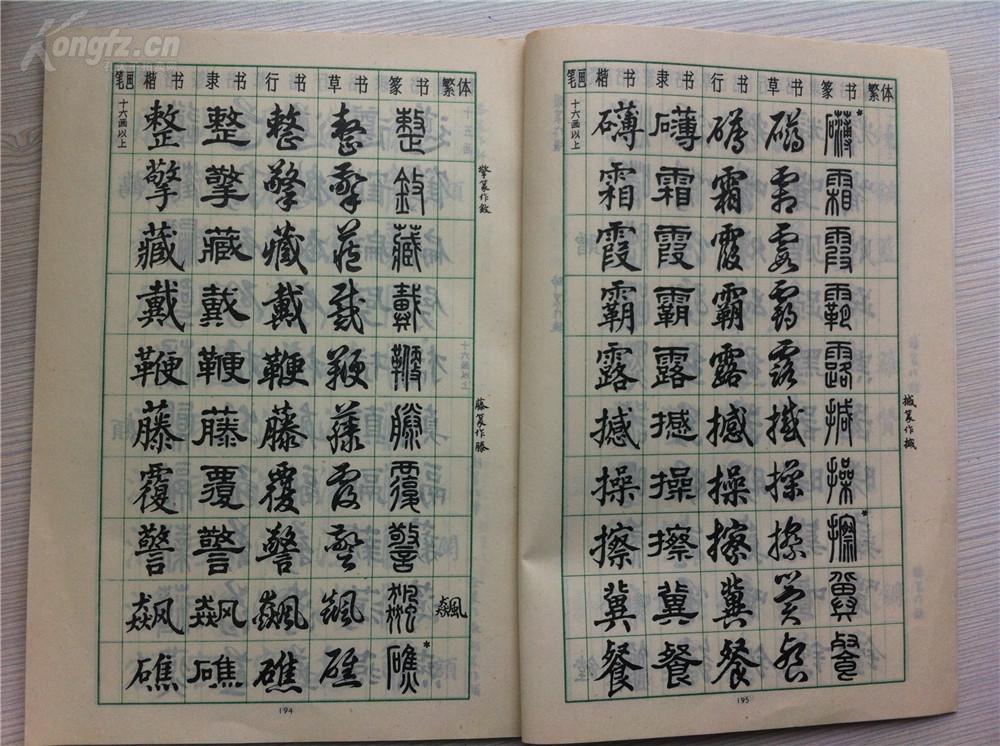 Kongfz.cn
笔画 楷书 隶书 行书 草书 篆书 繁体
十六画以上
整 整 整 整 整
擎 擎 擎 擎 擎篆作敓
藏 藏 藏 藏 藏
戴 戴 戴 戴 戴
鞭 鞭 鞭 鞭 鞭
藤 藤 藤 藤 藤篆作滕
覆 覆 覆 覆 覆
警 警 警 警 警
飙 飙 飙 飙 飙 飆
礁 礁 礁 礁 礁*
194
笔画 楷书 隶书 行书 草书 篆书 繁体
十六画以上
礴 礴 礴 礴 礴*
霜 霜 霜 霜 霜
霞 霞 霞 霞 霞
霸 霸 霸 霸 霸
露 露 露 露 露
撼 撼 撼 撼 撼篆作揻
操 操 操 操 操
擦 擦 擦 擦 擦*
冀 冀 冀 冀 冀
餐 餐 餐 餐 餐
195